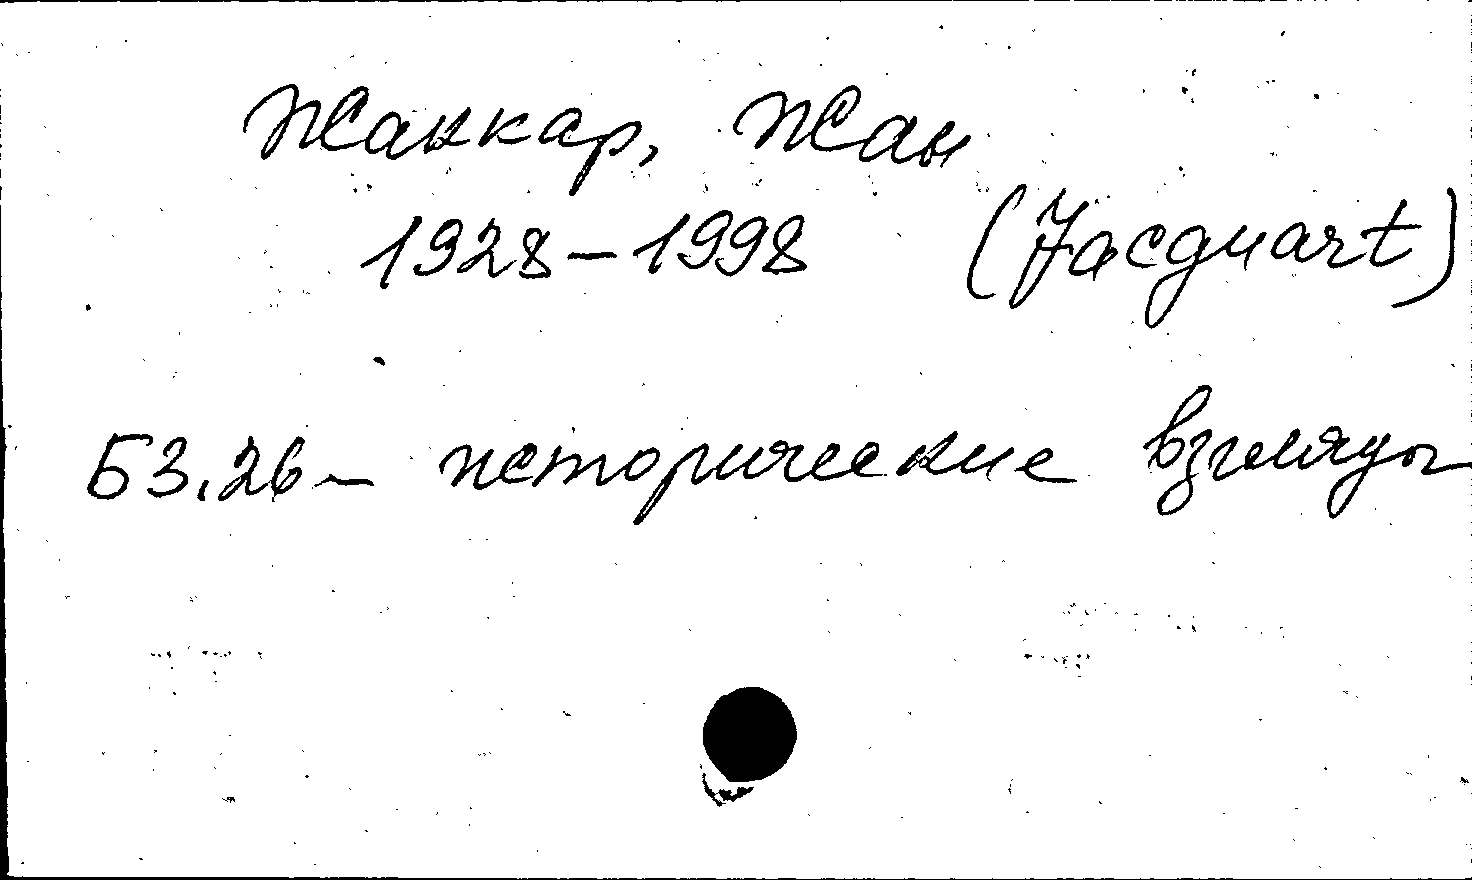 Жаккар, Жан
1928–1998 (Jacquart)
Б3.26 – исторические взгляды